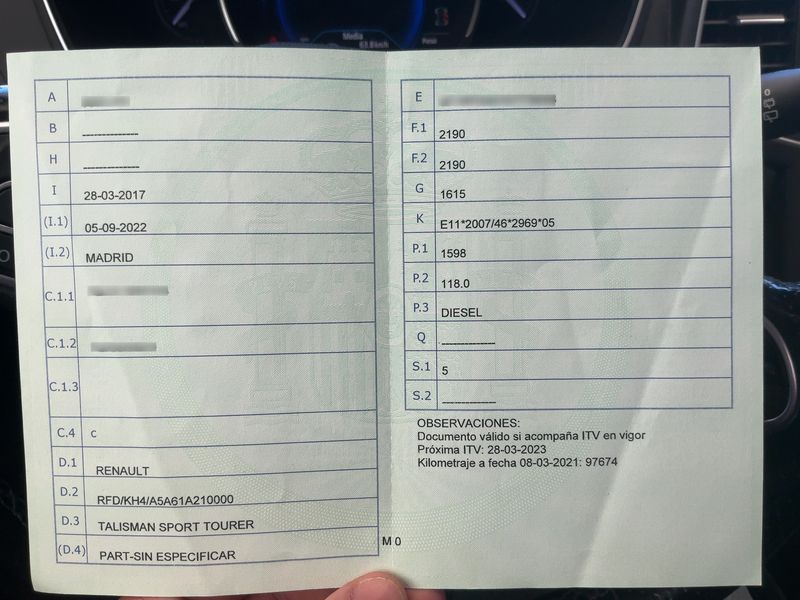 Media
63.8 km/h
A
B --------------
H --------------
I 28-03-2017
(I.1) 05-09-2022
(I.2) MADRID
C.1.1
C.1.2
C.1.3
C.4 C
D.1 RENAULT
D.2 RFD/KH4/A5A61A210000
D.3 TALISMAN SPORT TOURER
(D.4) PART-SIN ESPECIFICAR
M 0
E
F.1 2190
F.2 2190
G 1615
K E11*2007/46*2969*05
P.1 1598
P.2 118.0
P.3 DIESEL
Q --------------
S.1 5
S.2 --------------
OBSERVACIONES:
Documento válido si acompaña ITV en vigor
Próxima ITV: 28-03-2023
Kilometraje a fecha 08-03-2021: 97674